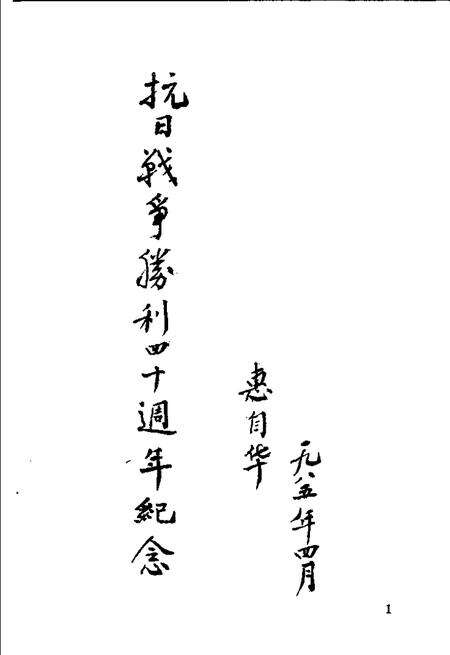 抗日戰爭勝利四十週年紀念
惠自华
一九八五年四月
1